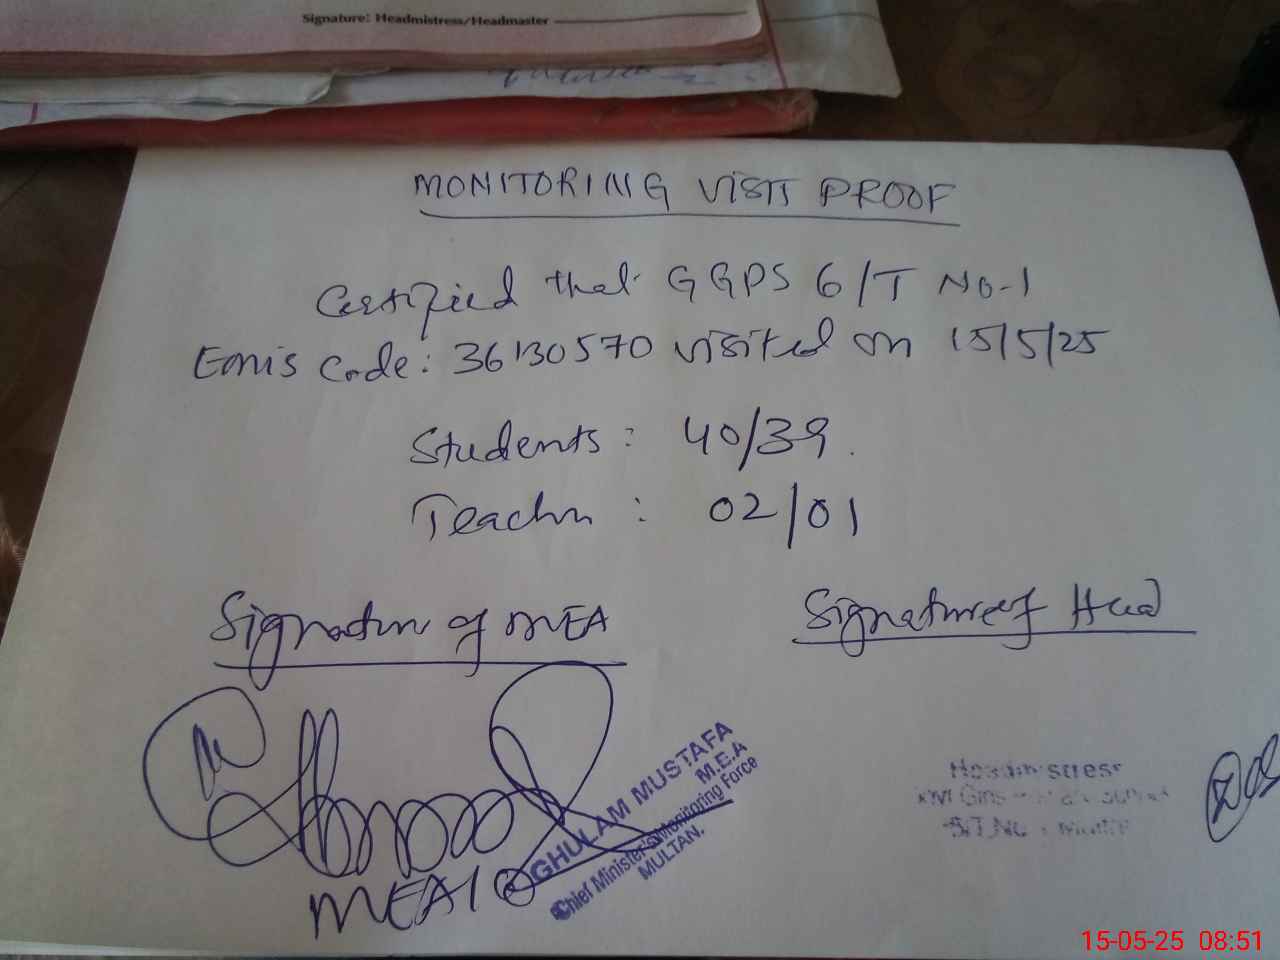 Signature: Headmistress/Headmaster
MONITORING VISIT PROOF
Certified that GGPS 6/T No-1
Emis Code: 36130570 visited on 15/5/25
Students: 40/39
Teacher: 02/01
Signature of MEA
Signature of Head
GHULAM MUSTAFA
M.E.A
Chief Minister's Monitoring Force
MULTAN.
MEA
Headmistress
15-05-25 08:51